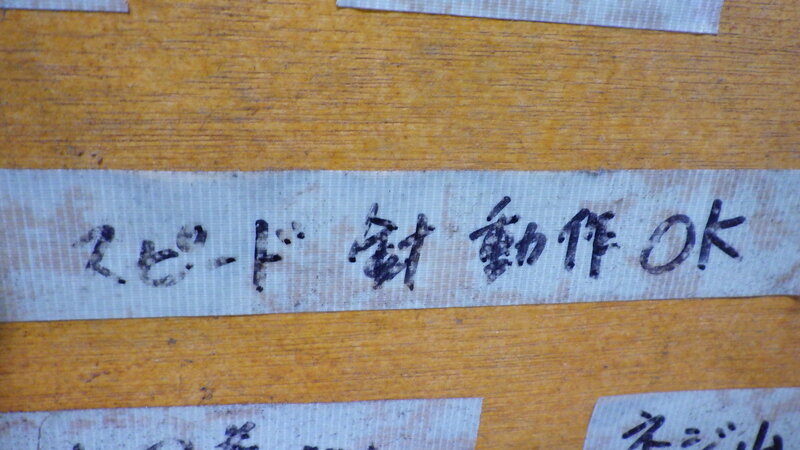 スピード 針 動作 OK
ネジ山